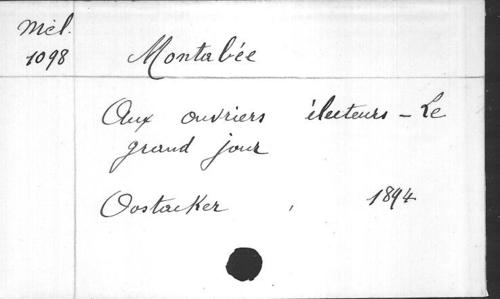 Mél.
1098
Montabée
Aux ouvriers électeurs - Le
grand jour
Oostacker , 1894